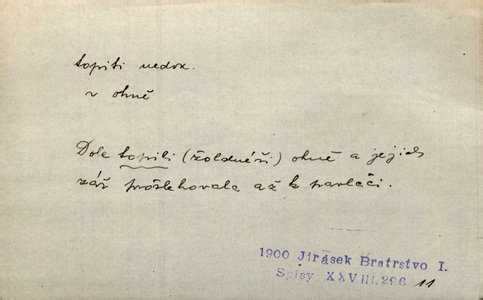 topiti nedok.
v ohně
Dole topili (žoldnéři) ohně a jejich
zář prošlehovala až k pavláči.
1900 Jirásek Bratrstvo I.
Spisy XXVIII. 296 11